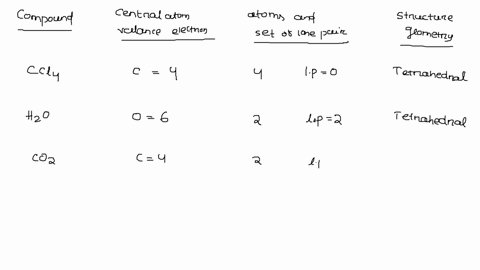 Compound Central atom valance electron atoms and set of lone pair Structure geometry
CCl4 C = 4 4 l.p = 0 Tetrahedral
H2O O = 6 2 l.p = 2 Tetrahedral
CO2 C = 4 2 l